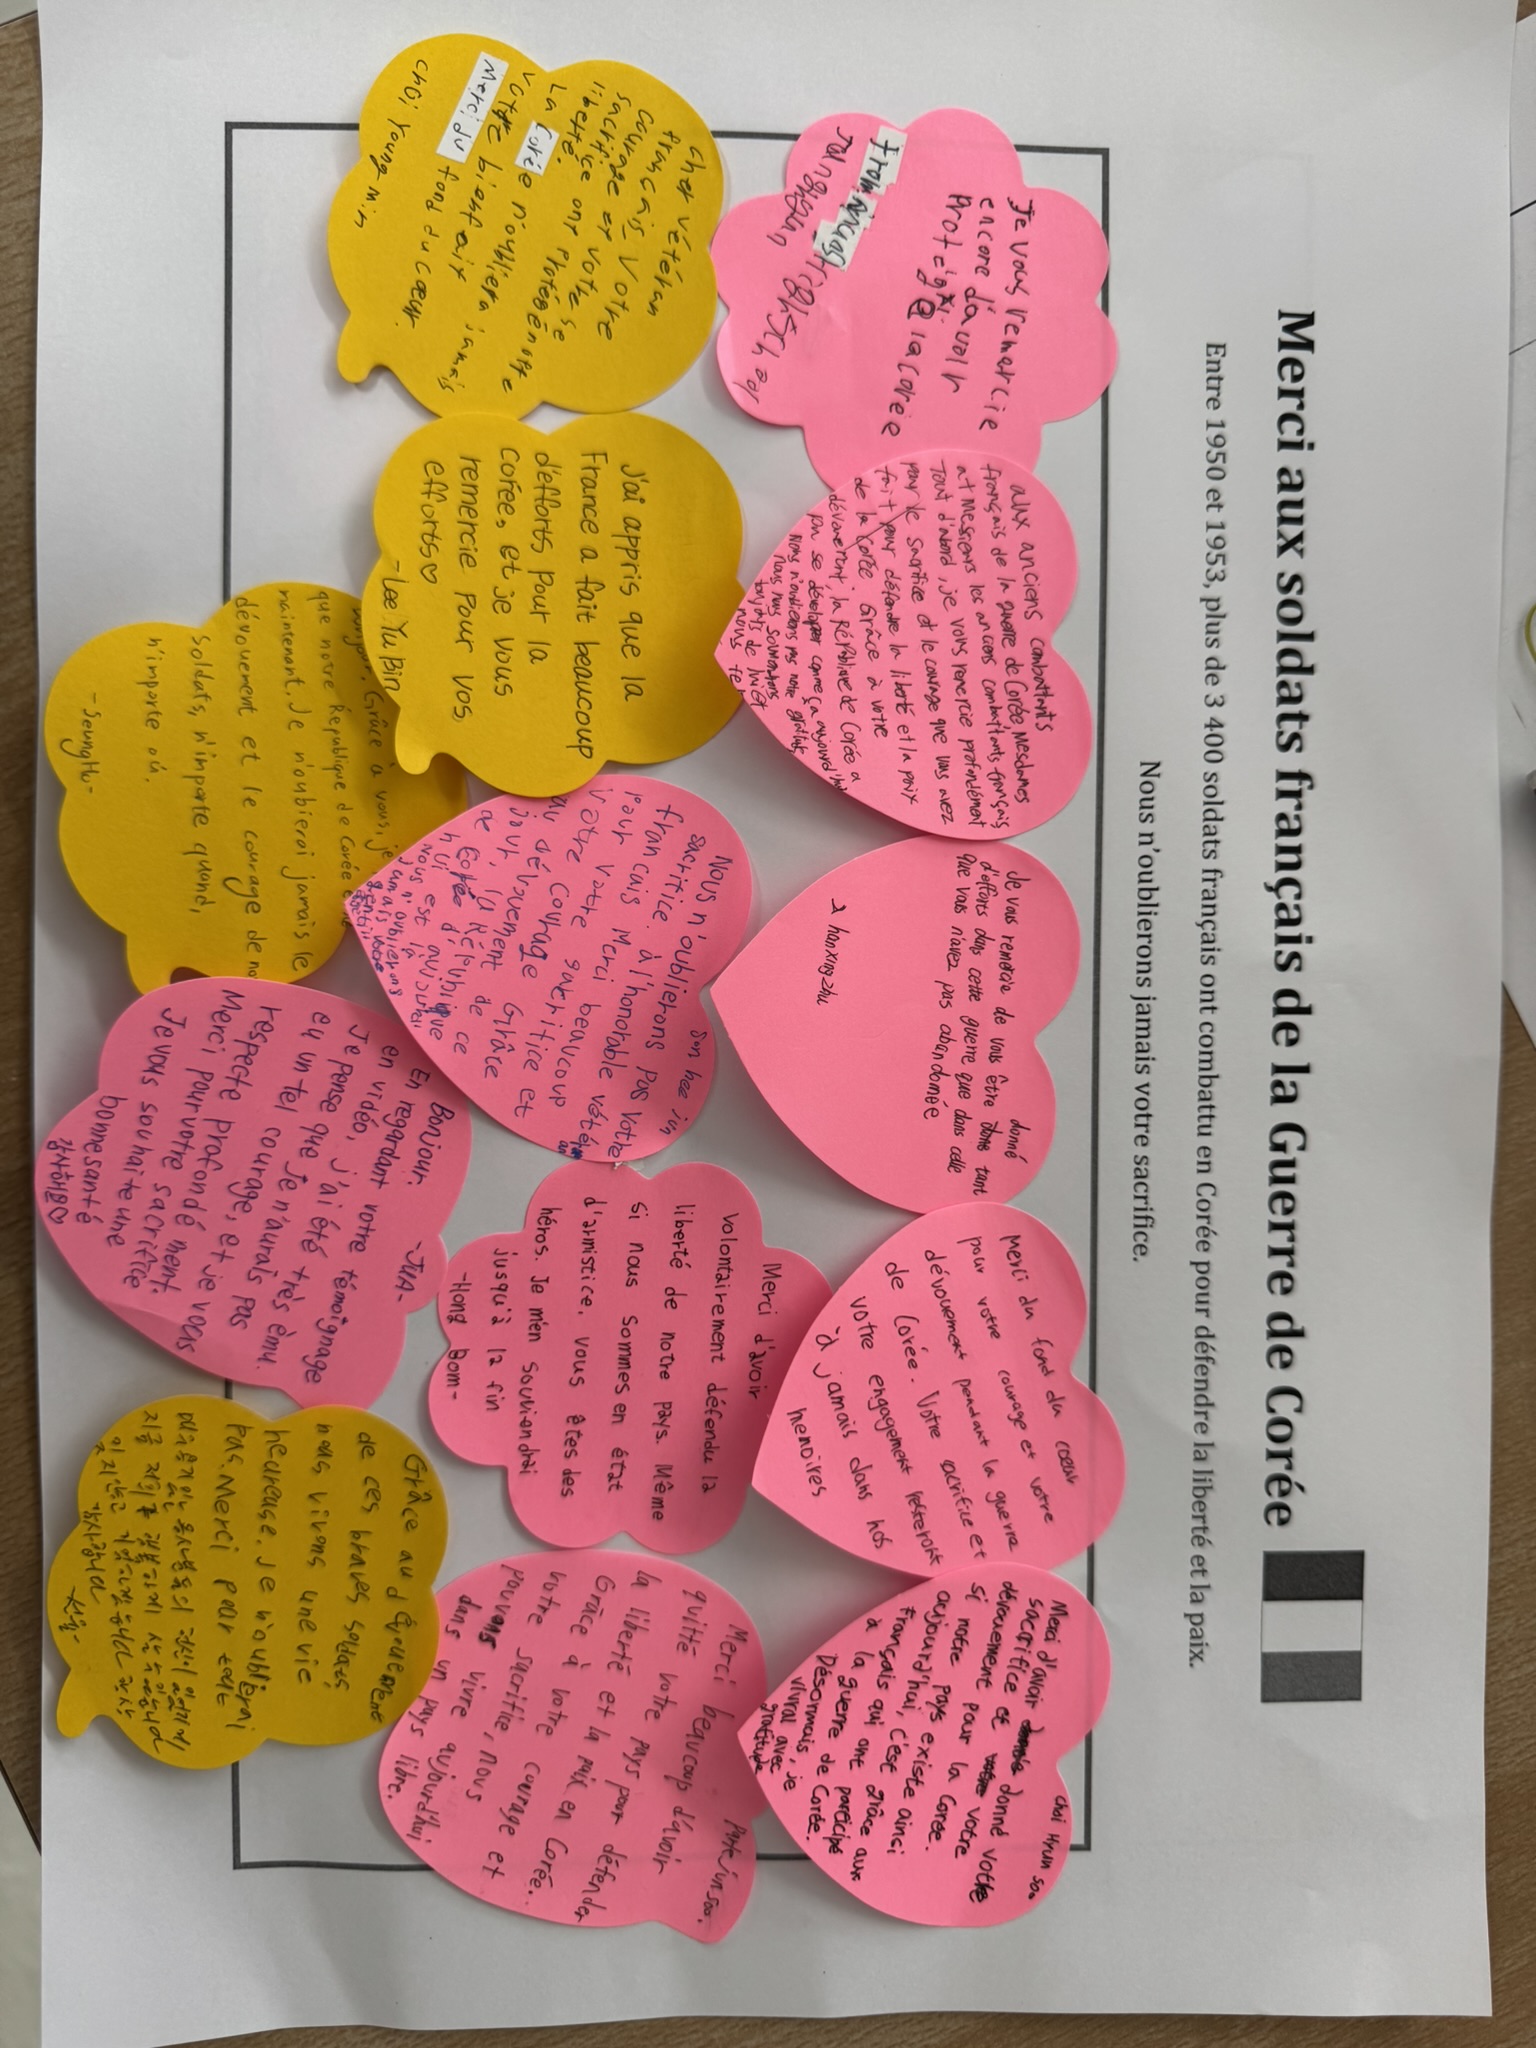 Merci aux soldats français de la Guerre de Corée
Entre 1950 et 1953, plus de 3 400 soldats français ont combattu en Corée pour défendre la liberté et la paix.
Nous n'oublierons jamais votre sacrifice.
Je vous remercie
encore d'avoir
protégé
la corée
From
aux anciens combattants
français de la guerre de Corée, Mesdames
et Messieurs les anciens combattants français
Tout d'abord, je vous remercie profondément
pour le sacrifice et le courage que vous avez
fait pour défendre la liberté et la paix
de la Corée. Grâce à votre
dévouement, la République de Corée a
pu se développer comme ça aujourd'hui
Nous n'oublierons pas notre gratitude
nous nous souviendrons
toujours de lui et
Je vous remercie de vous être donné tant
d'efforts dans cette guerre que dans celle
que vous n'avez pas abandonnée
hanxingzhu
Merci du fond du cœur
pour votre courage et votre
dévouement pendant la guerre
de Corée. Votre sacrifice et
votre engagement resteront
à jamais dans nos
memoires
Choi Hyun Soo
Merci d'avoir donné votre
sacrifice et votre
dévouement pour la Corée.
si notre pays existe ainsi
aujourd'hui, c'est grâce aux
Français qui ont participé
à la guerre de Corée.
Désormais, je
vivrai avec
gratitude
cher vétéran
français, Votre
courage et votre
sacrifice
liberté
La Corée n'oubliera jamais
votre bienfait
Merci du fond du cœur.
choi Young min
J'ai appris que la
France a fait beaucoup
d'efforts pour la
Corée, et je vous
remercie pour vos
efforts♡
-Lee Yu Bin
Son hee in
Nous n'oublierons pas votre
sacrifice à l'honorable vétéran
français Merci beaucoup
pour votre sacrifice et
votre courage Grâce
au dévouement de ce
jour, la République
de Corée d'aujourd'hui
est là
Nous n'oublierons
jamais votre
Merci d'avoir
volontairement défendu la
liberté de notre pays. Même
si nous sommes en état
d'armistice, vous êtes des
héros. Je m'en souviendrai
jusqu'à la fin
-Hong Bom-
Merci beaucoup d'avoir
quitté votre pays pour défendre
la liberté et la paix en Corée.
Grâce à votre courage et
votre sacrifice, nous
pouvons vivre aujourd'hui
dans un pays libre.
Grâce à vous, je
que notre République de Corée
maintenant. Je n'oublierai jamais le
dévouement et le courage de nos
soldats, n'importe quand,
n'importe où.
-SeungHu-
-JUA-
Bonjour.
En regardant votre témoignage
en vidéo, j'ai été très ému.
Je pense que je n'aurais pas
eu un tel courage, et je vous
respecte profondément.
Merci pour votre sacrifice
Je vous souhaite une
bonne santé
감사해용♡
Grâce au dévouement
de ces braves soldats,
nous vivons une vie
heureuse. Je n'oublierai
pas. Merci pour tout